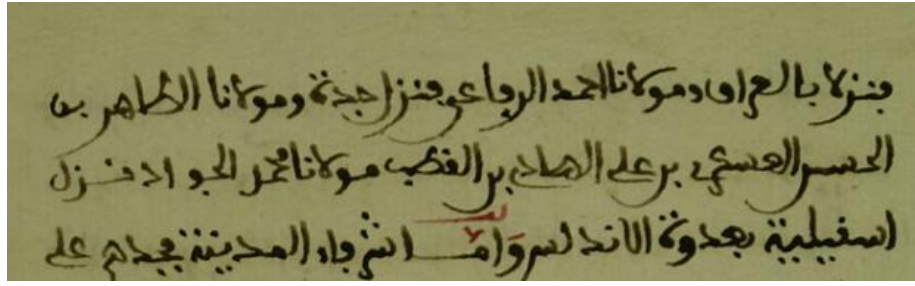 فنزلا بالعراق ومولانا احمد الرفاعي فنزل جدة ومولانا الطاهر بن
الحسن العسكري بن علي الهادي بن القطب مولانا محمد الجواد فنزل
اشبيلية بعدوة الاندلس وأما اشرفاء المدينة فجدهم علي